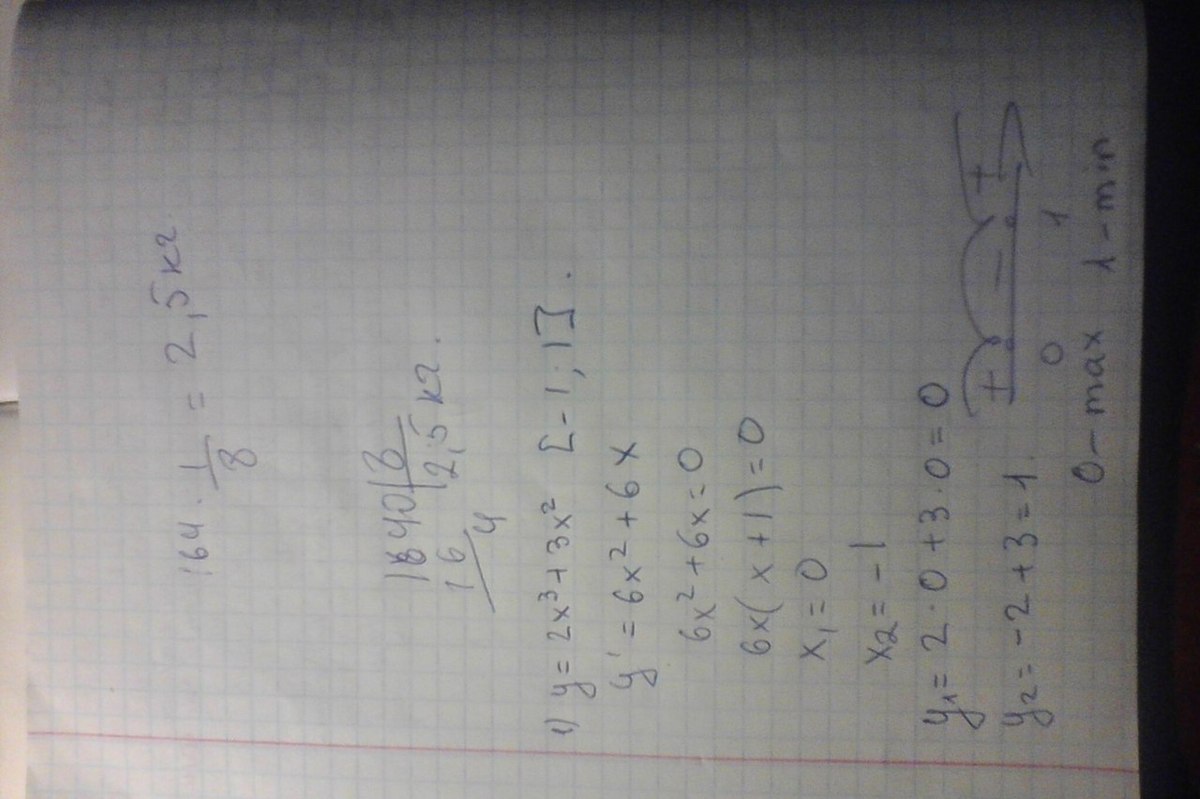 164 · 1/8 = 2,5 кг.
1640 | 8
16 | 2,5 кг.
4
1) y = 2x³ + 3x² [-1; 1].
y' = 6x² + 6x
6x² + 6x = 0
6x(x + 1) = 0
x₁ = 0
x₂ = -1
y₁ = 2 · 0 + 3 · 0 = 0
y₂ = -2 + 3 = 1.
+ - +
0 1
0 - max 1 - min